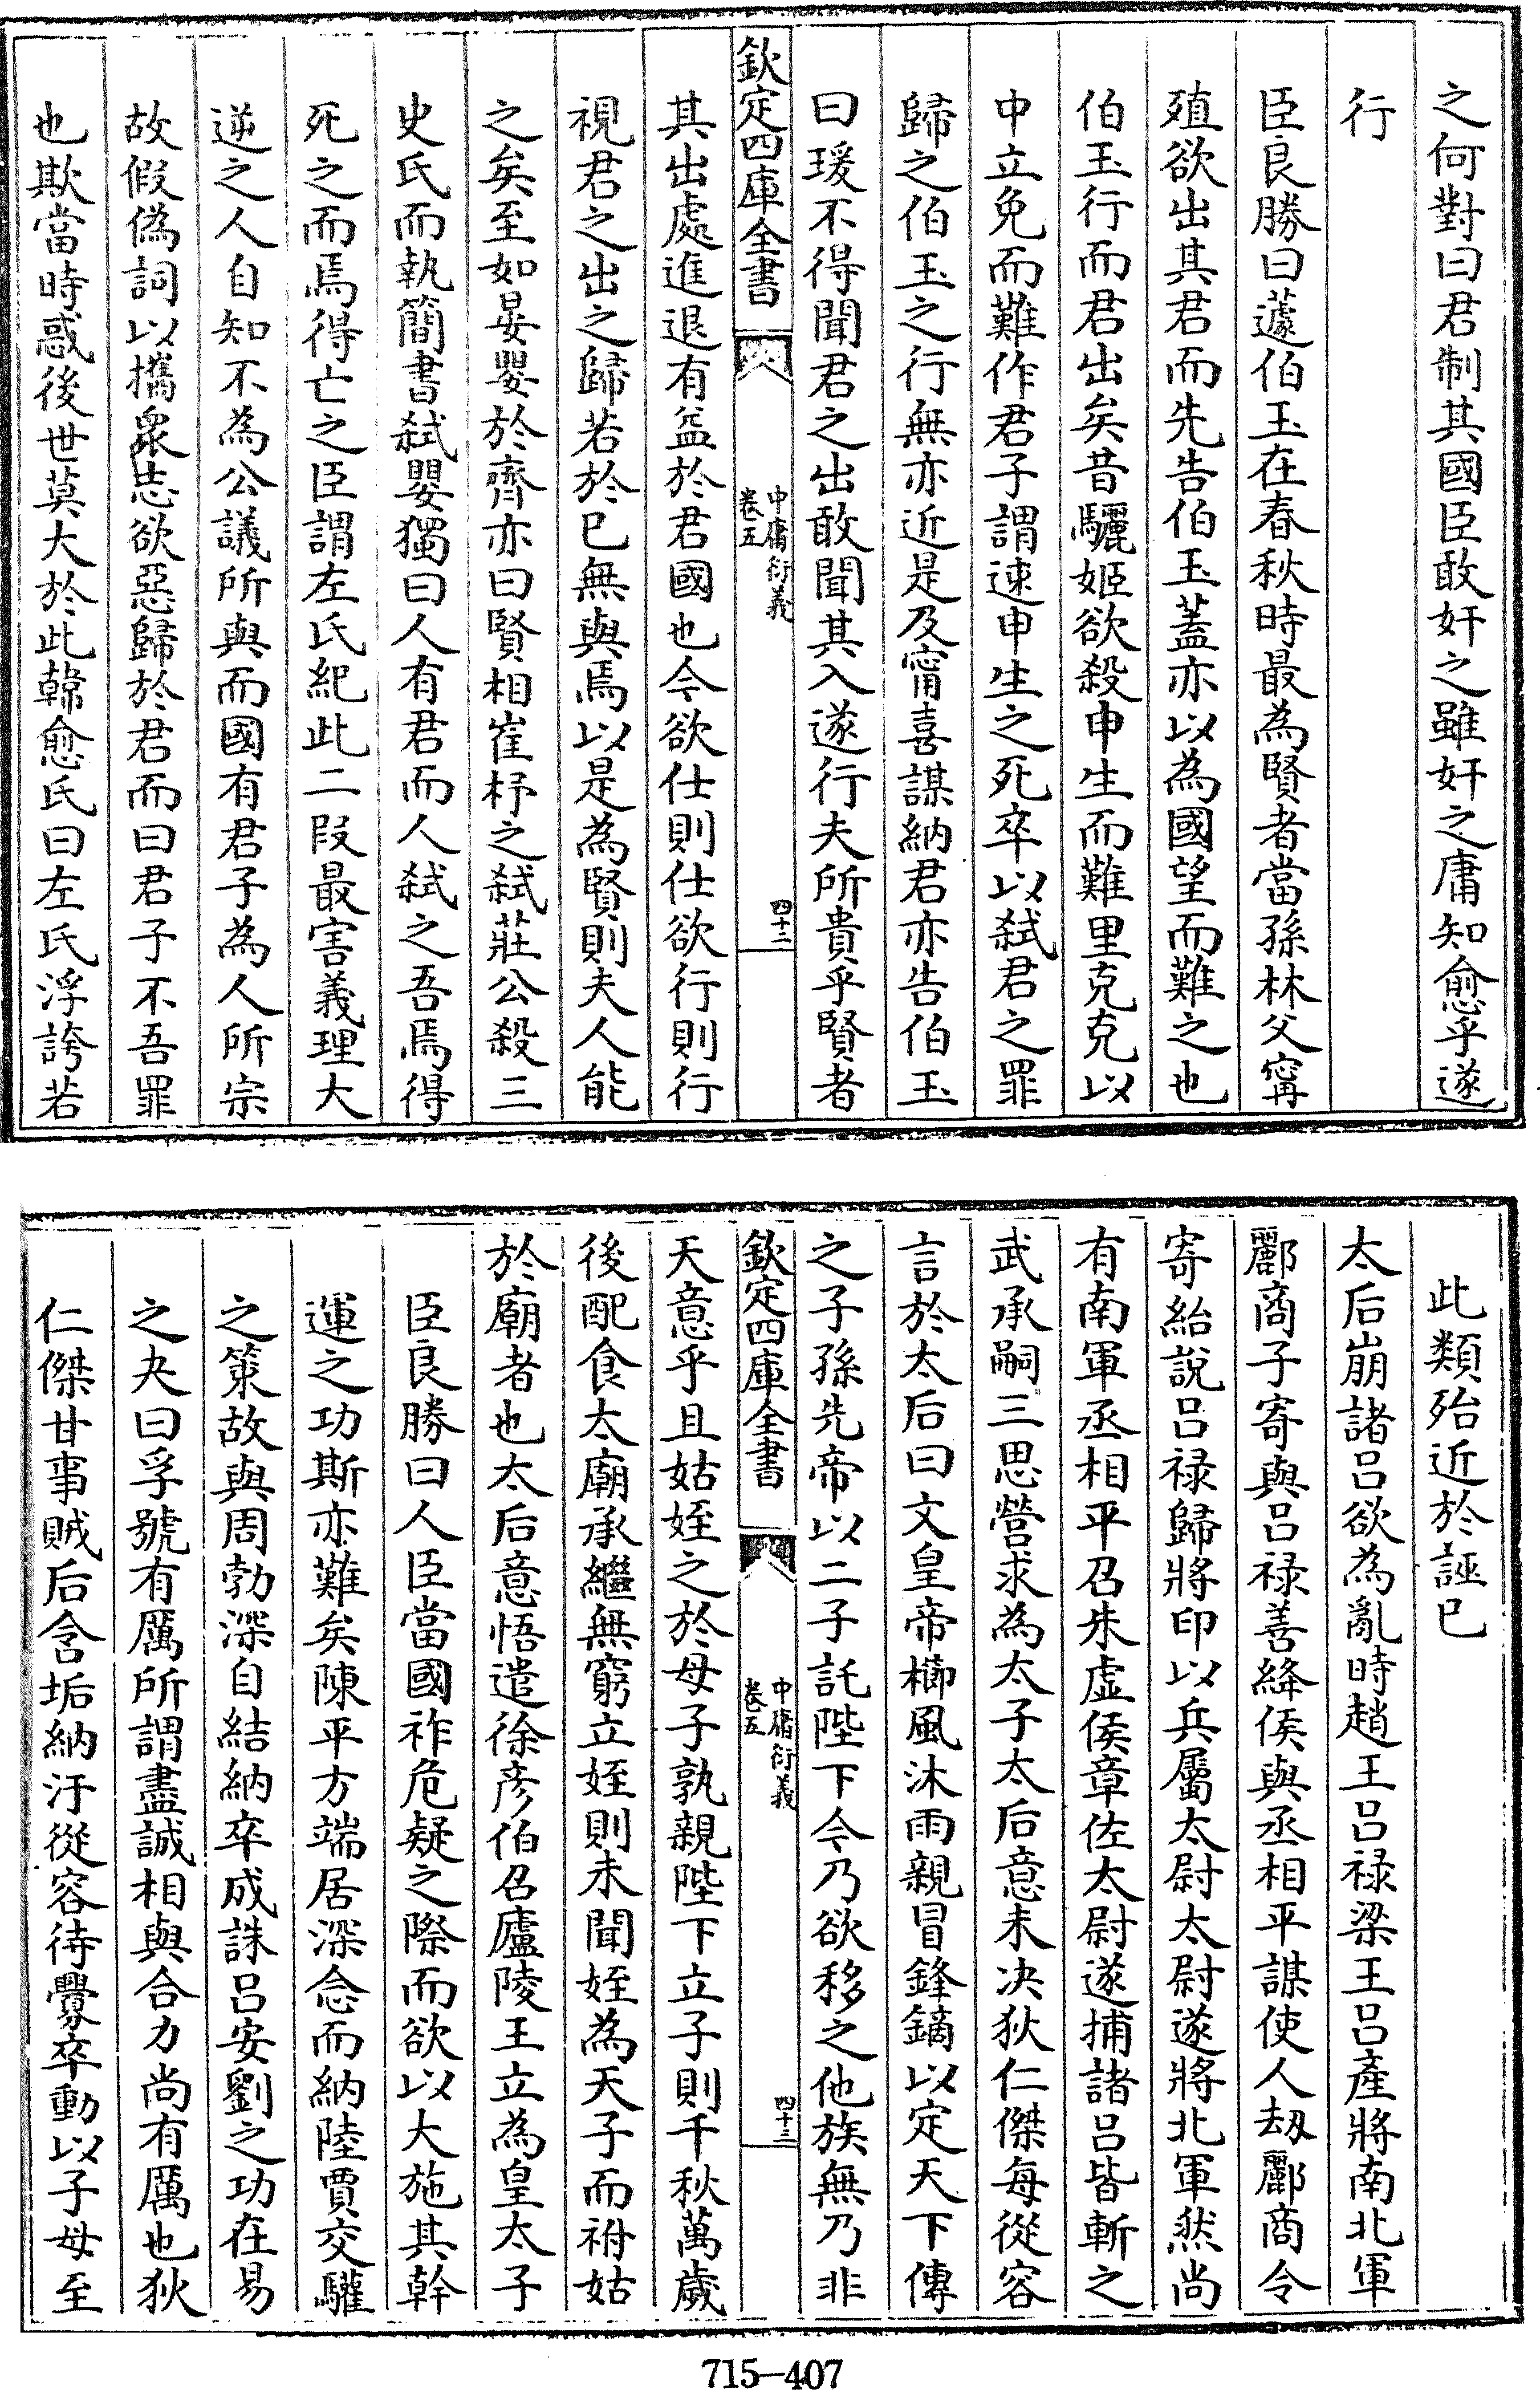 之何對曰君制其國臣敢奸之雖奸之庸知愈乎遂
行
臣良勝曰蘧伯玉在春秋時最為賢者當孫林父寗
殖欲出其君而先告伯玉蓋亦以為國望而難之也
伯玉行而君出矣昔驪姬欲殺申生而難里克克以
中立免而難作君子謂速申生之死卒以弑君之罪
歸之伯玉之行無亦近是及甯喜謀納君亦告伯玉
曰瑗不得聞君之出敢聞其入遂行夫所貴乎賢者
欽定四庫全書
中庸衍義
卷五
四十二
其出處進退有益於君國也今欲仕則仕欲行則行
視君之出之歸若於已無與焉以是為賢則夫人能
之矣至如晏嬰於齊亦曰賢相崔杼之弑莊公殺三
史氏而執簡書弑嬰獨曰人有君而人弑之吾焉得
死之而焉得亡之臣謂左氏紀此二段最害義理大
逆之人自知不為公議所與而國有君子為人所宗
故假偽詞以攜衆志欲惡歸於君而曰君子不吾罪
也欺當時惑後世莫大於此韓愈氏曰左氏浮誇若
此類殆近於誣已
太后崩諸呂欲為亂時趙王呂禄梁王呂產將南北軍
酈商子寄與呂禄善絳侯與丞相平謀使人刼酈商令
寄紿說呂禄歸將印以兵屬太尉太尉遂將北軍然尚
有南軍丞相平召朱虛侯章佐太尉遂捕諸呂皆斬之
武承嗣三思營求為太子太后意未决狄仁傑每從容
言於太后曰文皇帝櫛風沐雨親冒鋒鏑以定天下傳
之子孫先帝以二子託陛下今乃欲移之他族無乃非
欽定四庫全書
中庸衍義
卷五
四十三
天意乎且姑姪之於母子孰親陛下立子則千秋萬歲
後配食太廟承繼無窮立姪則未聞姪為天子而祔姑
於廟者也太后意悟遣徐彥伯召廬陵王立為皇太子
臣良勝曰人臣當國祚危疑之際而欲以大施其幹
運之功斯亦難矣陳平方端居深念而納陸賈交驩
之策故與周勃深自結納卒成誅呂安劉之功在易
之夬曰孚號有厲所謂盡誠相與合力尚有厲也狄
仁傑甘事賊后含垢納汙從容待釁卒動以子母至
715-407